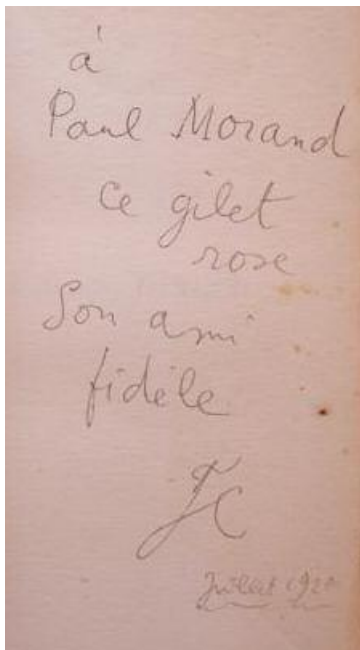 à
Paul Morand
ce gilet
rose
Son ami
fidèle
JC
Juillet